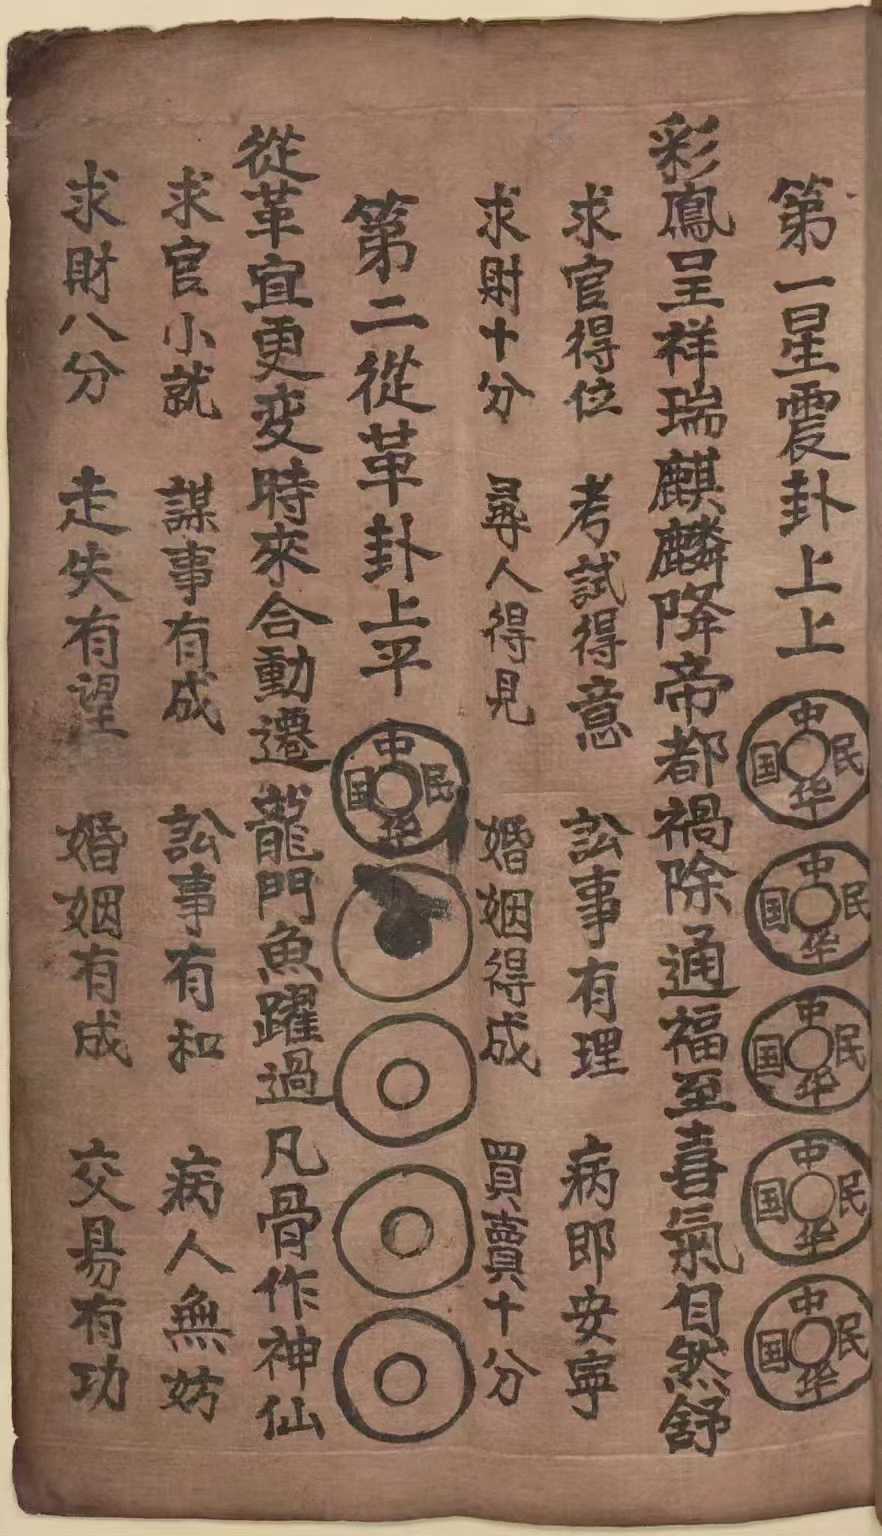 第一星震卦上上
中民华国
中民华国
中民华国
中民华国
中民华国
彩鳳呈祥瑞麒麟降帝都禍除通福至喜氣自然舒
求官得位 考試得意 訟事有理 病即安寧
求財十分 尋人得見 婚姻得成 買賣十分
第二從革卦上平
中民华国
從革宜更変時來合動遷龍門魚躍過凡骨作神仙
求官小就 謀事有成 訟事有和 病人無妨
求財八分 走失有望 婚姻有成 交易有功